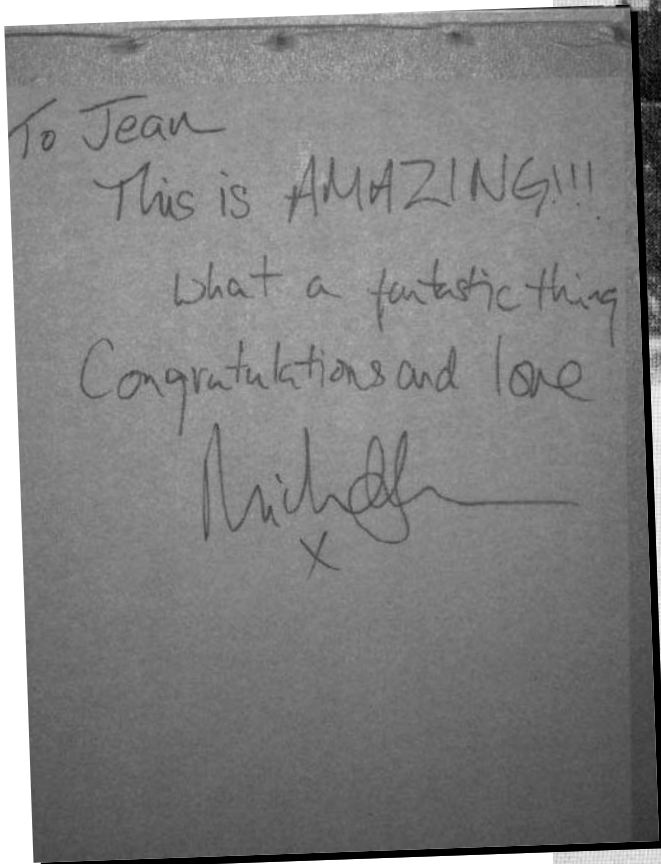 To Jean
This is AMAZING!!!
What a fantastic thing
Congratulations and love
x